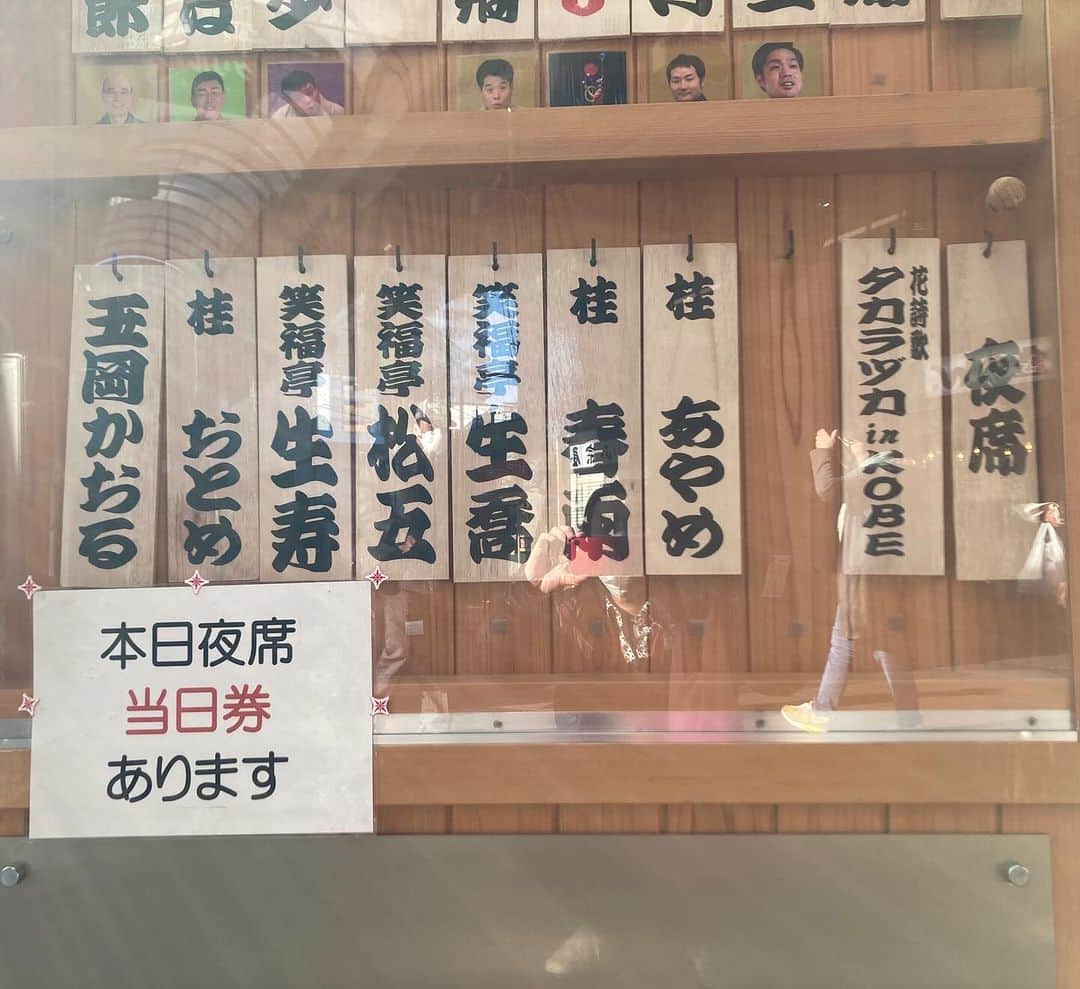 夜席
花詩歌
タカラヅカ in KOBE
桂 あやめ
桂 春雨
笑福亭 生喬
笑福亭 松五
笑福亭 生寿
桂 おとめ
玉岡かおる
本日夜席
当日券
あります